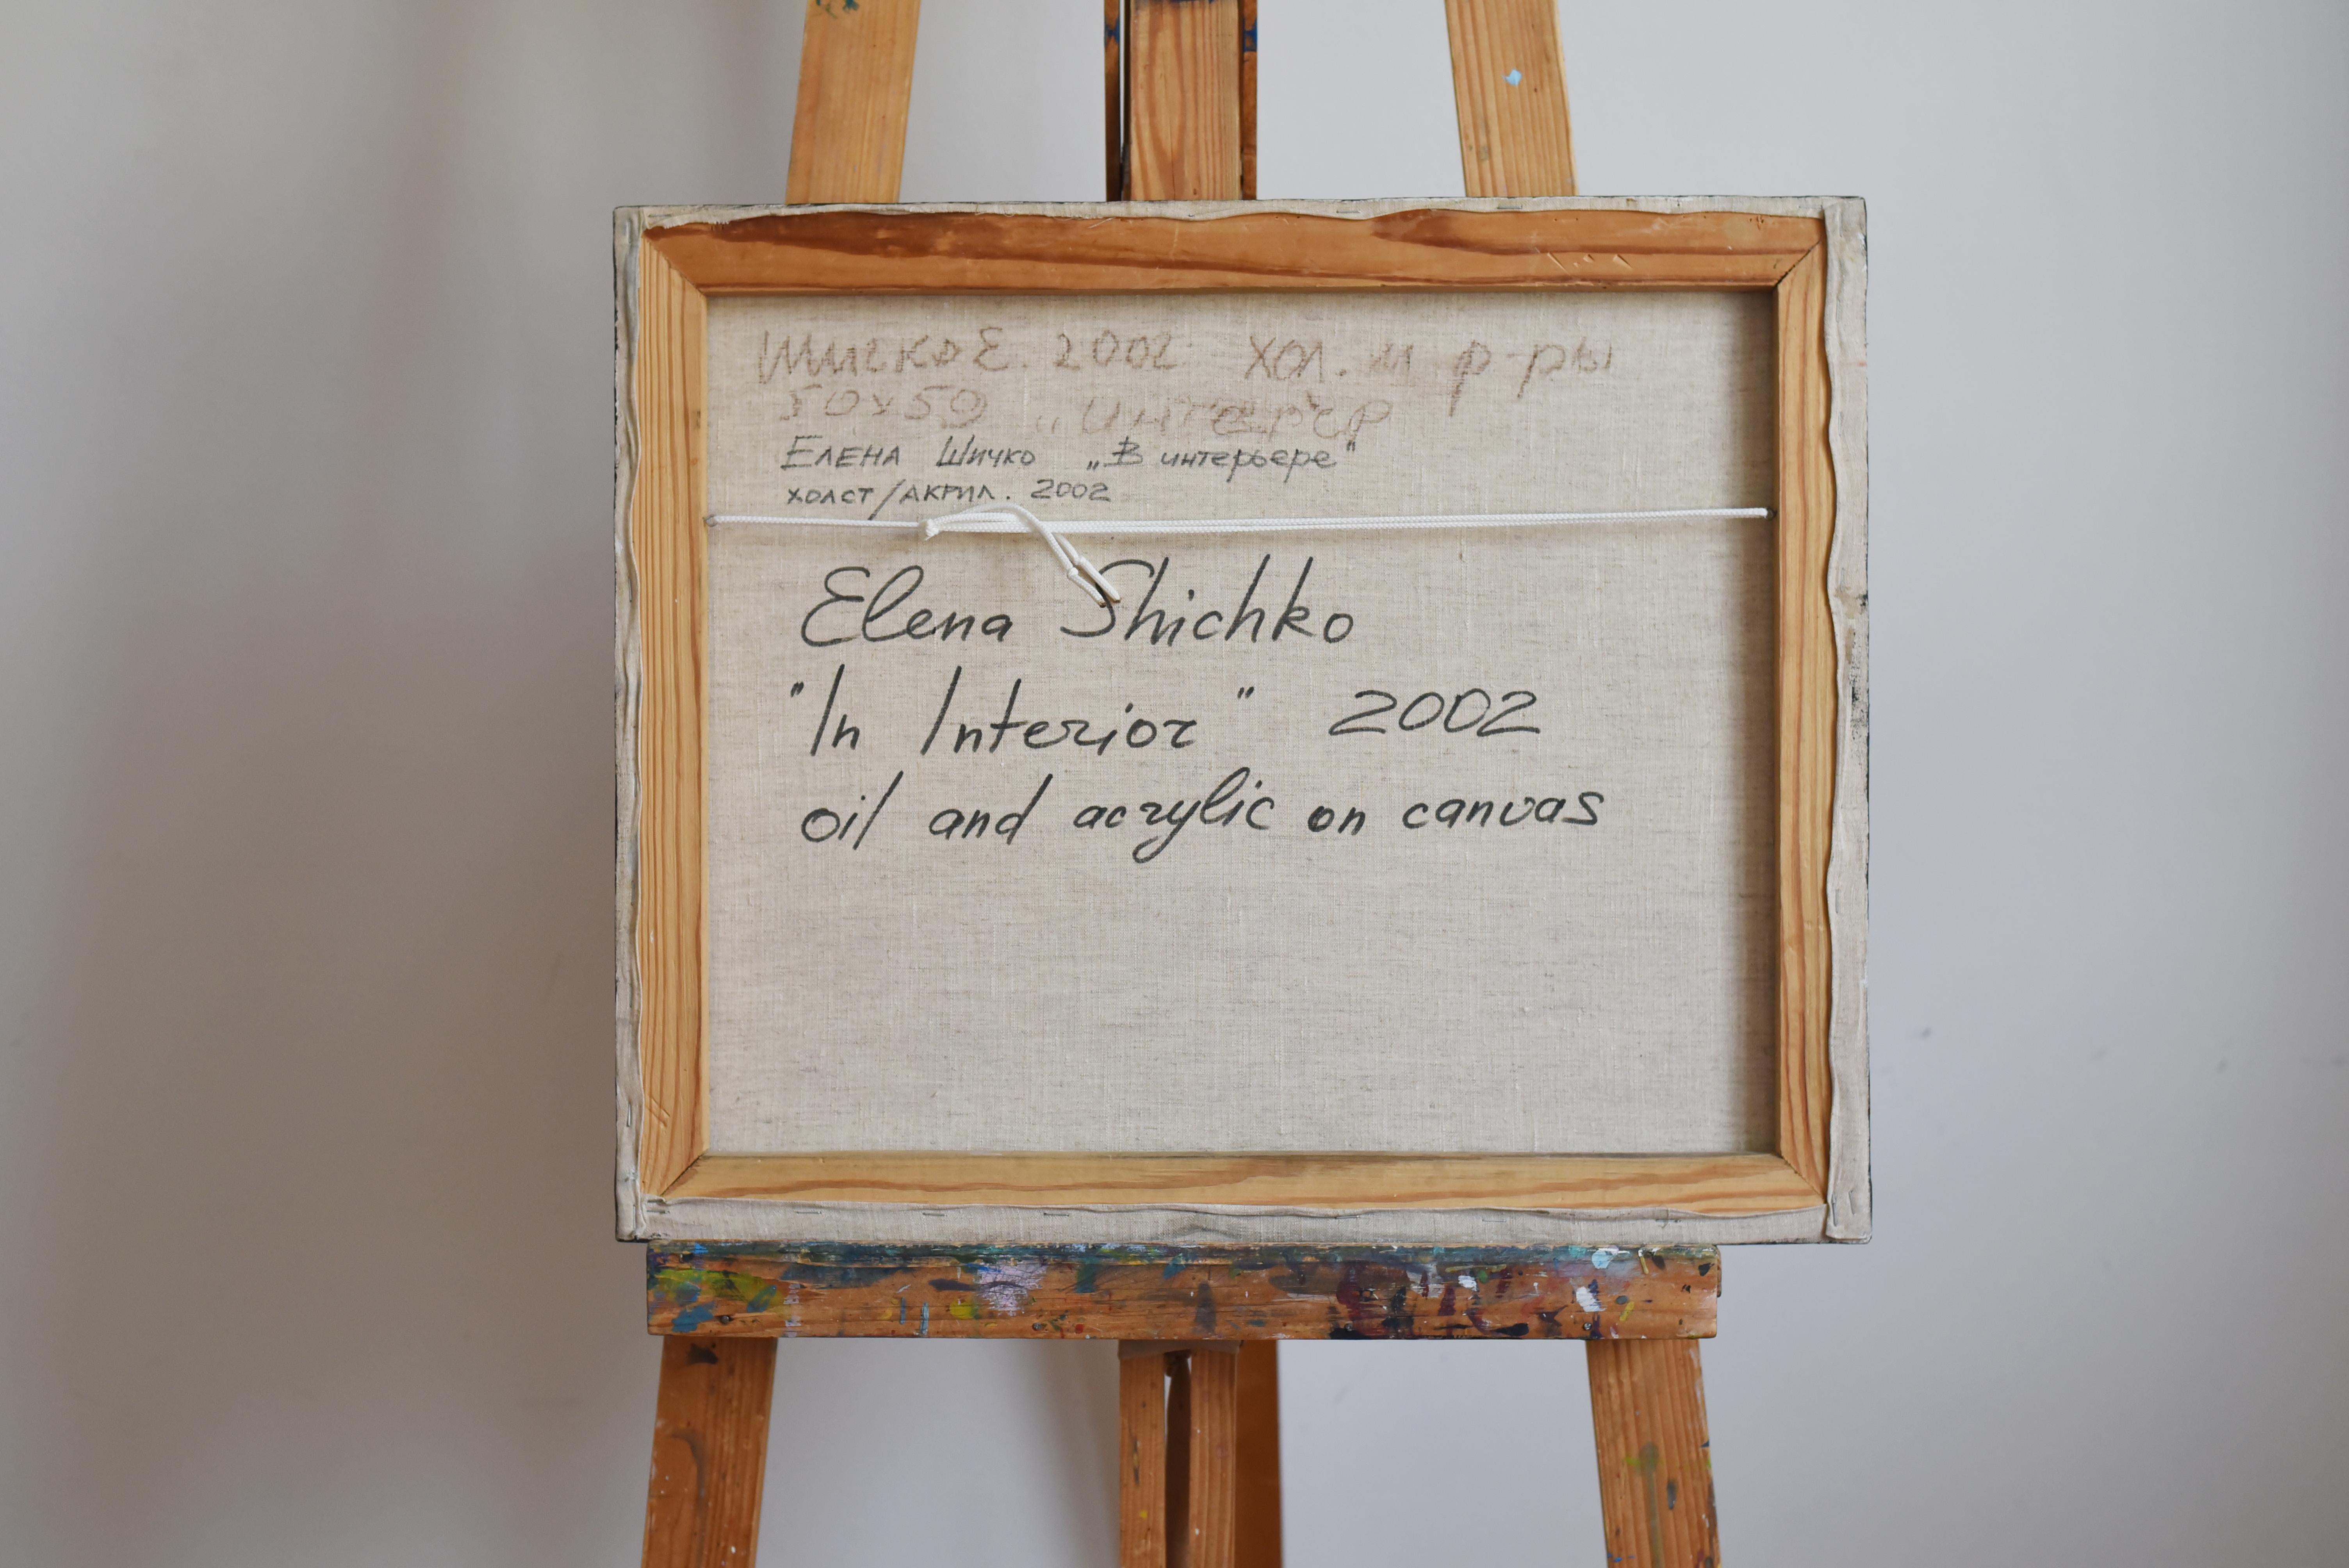 Шичко Е. 2002 хол. м р-ры
50х50 „Интерьер
Елена Шичко „В интерьере"
холст/акрил. 2002
Elena Shichko
"In Interior" 2002
oil and acrylic on canvas